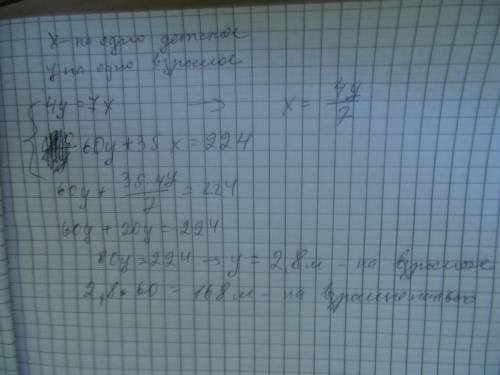 x - на одно детское
y на одно взрослое
4y = 7x → x = 4y/7
60y + 35x = 224
60y + 35·4y/7 = 224
60y + 20y = 224
80y = 224 → y = 2,8 м - на взрослое
2,8 · 60 = 168 м - на взрослые пальто